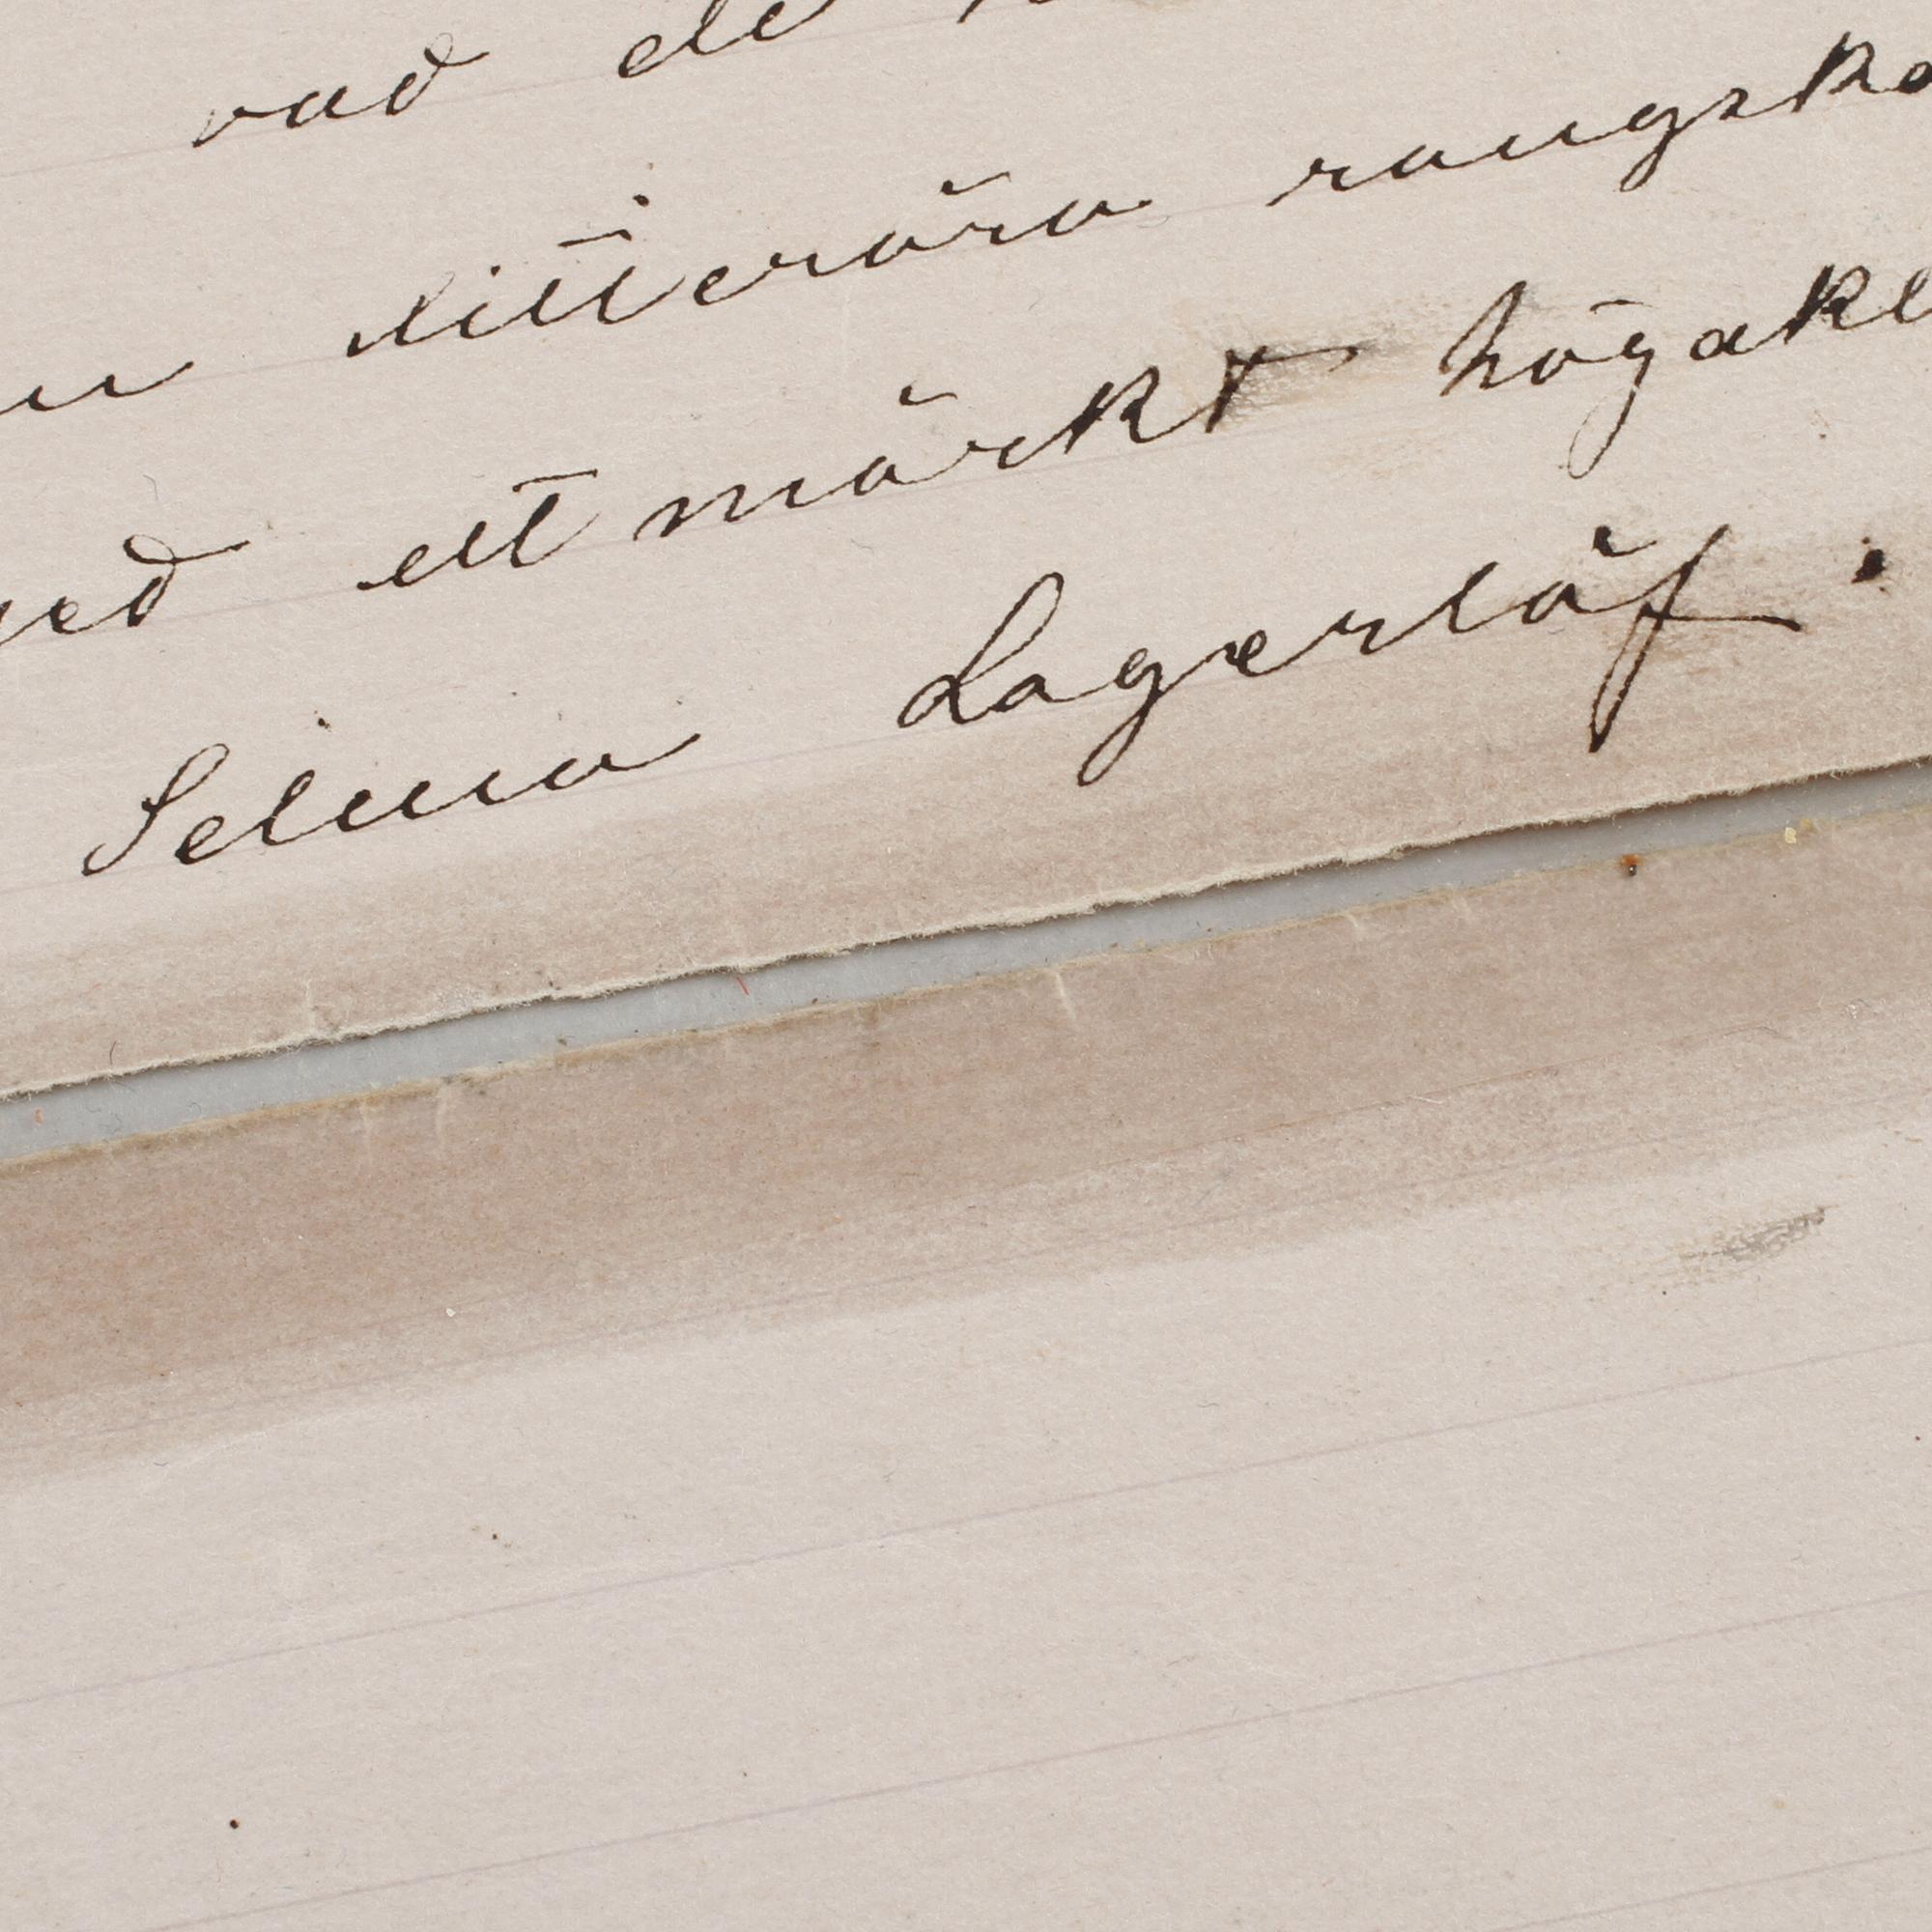 vad de
litterära rangsko
med ett märkt högakt
Selma Lagerlöf.